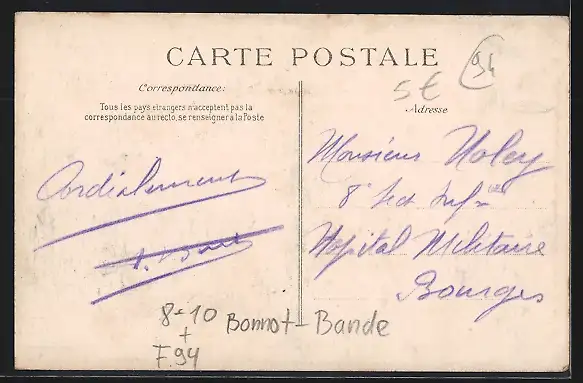 CARTE POSTALE
94
5€
Correspondance:
Tous les pays étrangers n'acceptent pas la
correspondance au recto, se renseigner à la Poste
Adresse
Cordialement
Monsieur Noley
8e Sect Inf
Hopital Militaire
Bourges
8-10
+
F.94
Bonnot-Bande